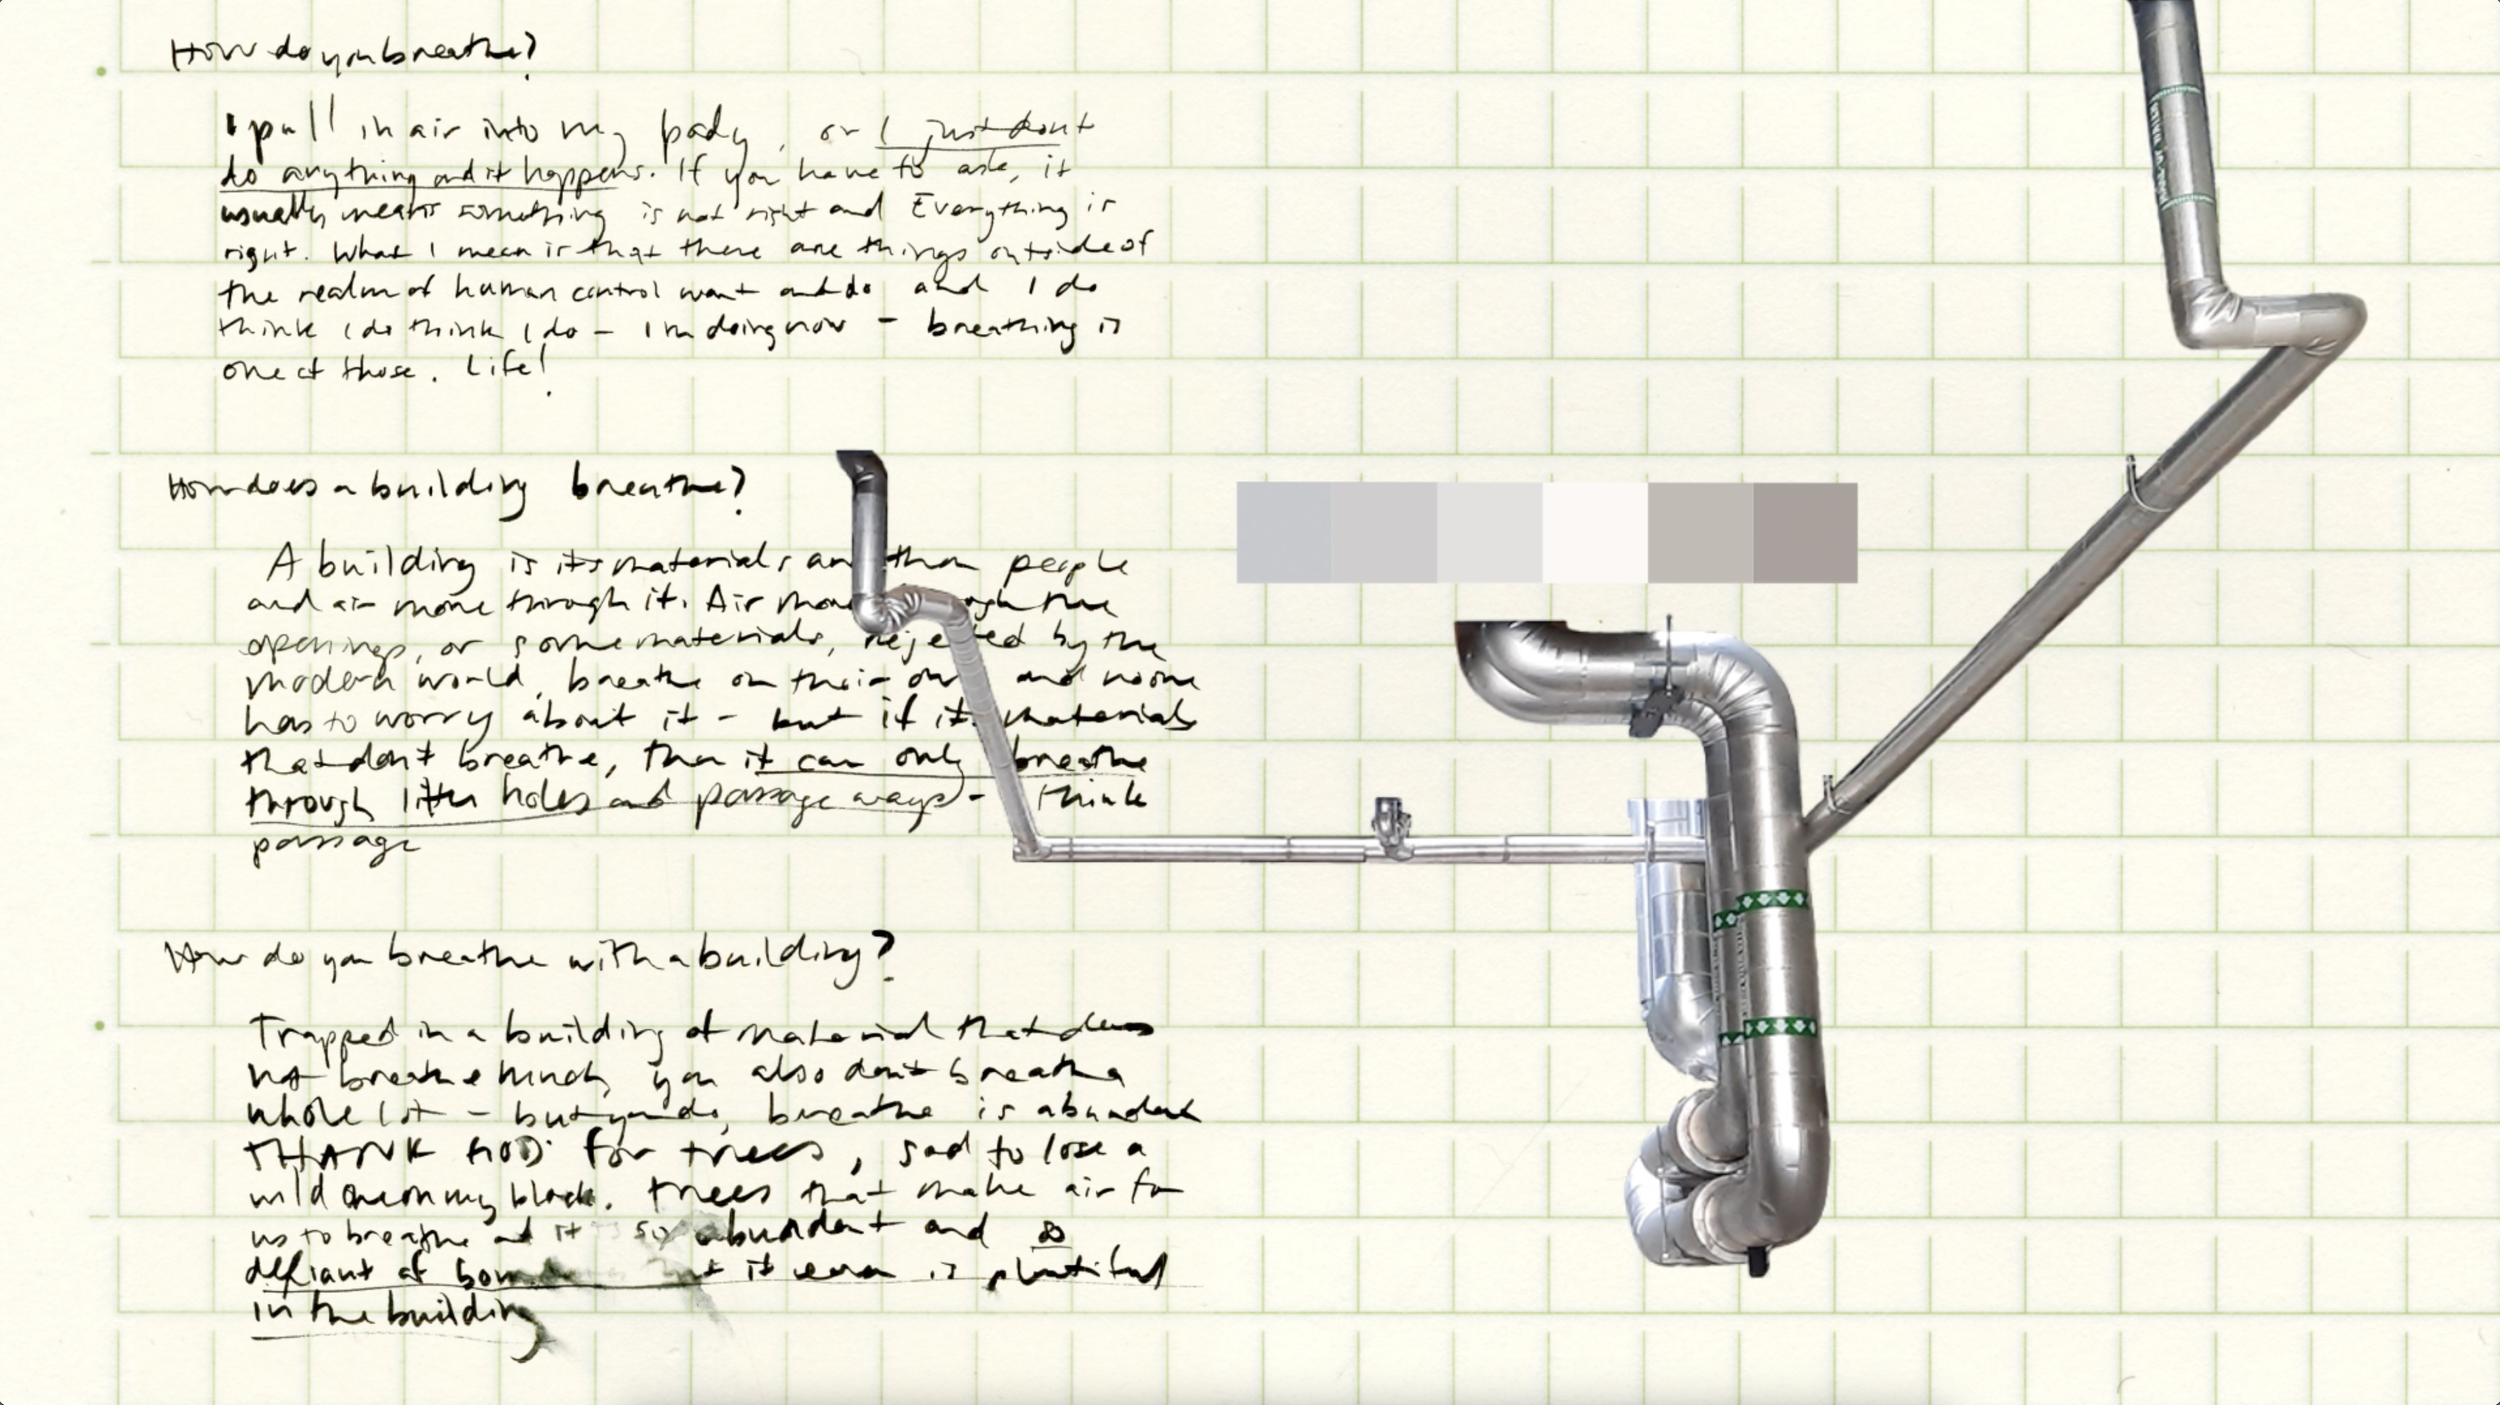 How do you breathe?
I pull in air into my body, or I just dont
do anything and it happens. If you have to ask, it
usually means something is not right and Everything is
right. What I mean is that there are things outside of
the realm of human control want and do and I do
think I do think I do – Im doing now – breathing is
one of those. Life!
How does a building breathe?
A building is its materials an than people
and air move through it. Air the
openings, or some materials, rejected by the
modern world, breathe on their own and no one
has to worry about it – but if its materials
that dont breathe, then it can only breathe
through little holes and passage ways – think
passage
How do you breathe with a building?
Trapped in a building of material that does
not breathe much, you also dont breathe a
whole lot – but you do, breathe is abundant
THANK GOD for trees, sad to lose a
wild one on my block. trees that make air for
us to breathe and it so abundant and so
defiant of it even is plentiful
in the building